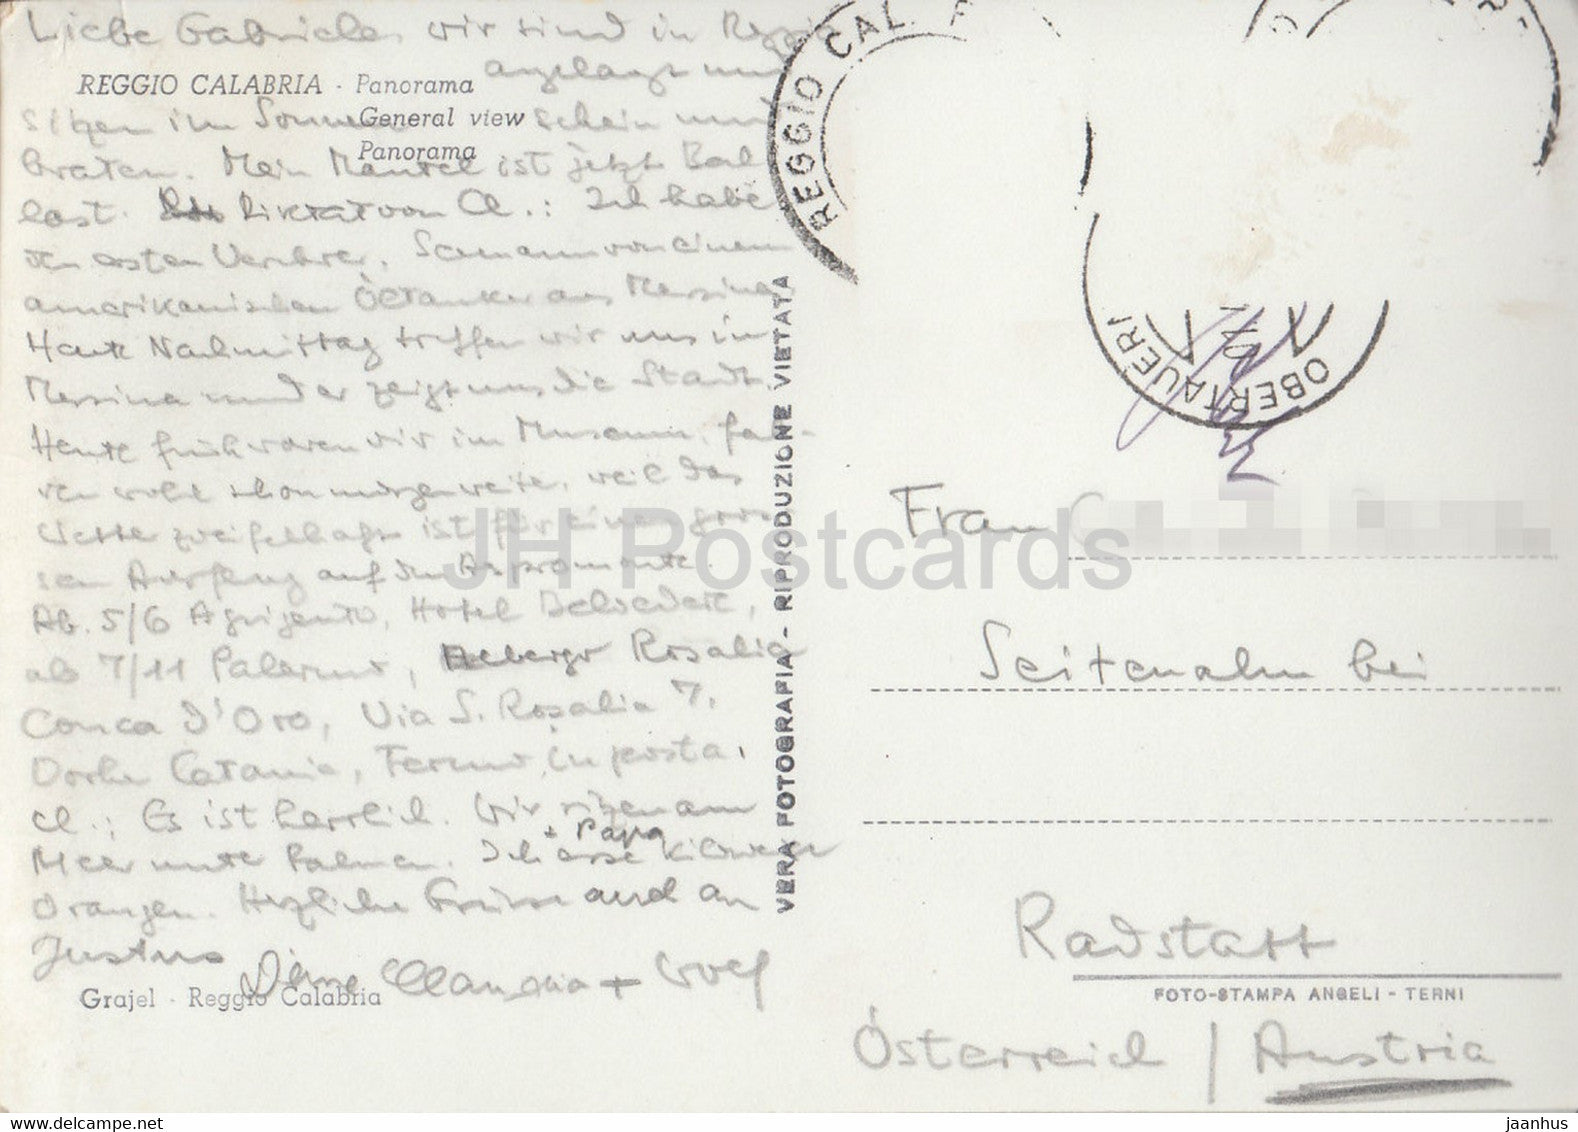 Liebe Gabriele, wir sind in Reggio
angelangt und
REGGIO CALABRIA - Panorama
General view
Panorama
sitzen im Sonnenschein und
braten. Mein Mantel ist jetzt Bal
last. Diktat von Cl.: Ich habe
den ersten Verehrer, Seemann von einem
amerikanischen Öltanker aus Messina.
Heute Nachmittag treffen wir uns in
Messina und er zeigt uns die Stadt.
Heute früh waren wir im Museum, fah-
ren wohl schon morgen weiter, weil das
Wetter zweifelhaft ist für einen gros
sen Ausflug auf den Aspromonte.
Ab. 5/6 Agrigento, Hotel Belvedere,
ab 7/11 Palermo, Albergo Rosalia
Conca D'Oro, Via S. Rosalia 7.
Catania, Fermo in posta.
Cl.: Es ist herrlich. Wir sitzen am
Meer unter Palmen. Ich + Papa esse kiloweise
Orangen. Herzliche Grüsse auch an
Justus
Deine Claudia + Wolf
Grajel - Reggio Calabria
VERA FOTOGRAFIA - RIPRODUZIONE VIETATA
REGGIO CAL.
OBERTAUERN
JH Postcards
Frau
Seitenalm bei
Radstatt
FOTO-STAMPA ANGELI - TERNI
Österreich / Austria
www.delcampe.net
jaanhus